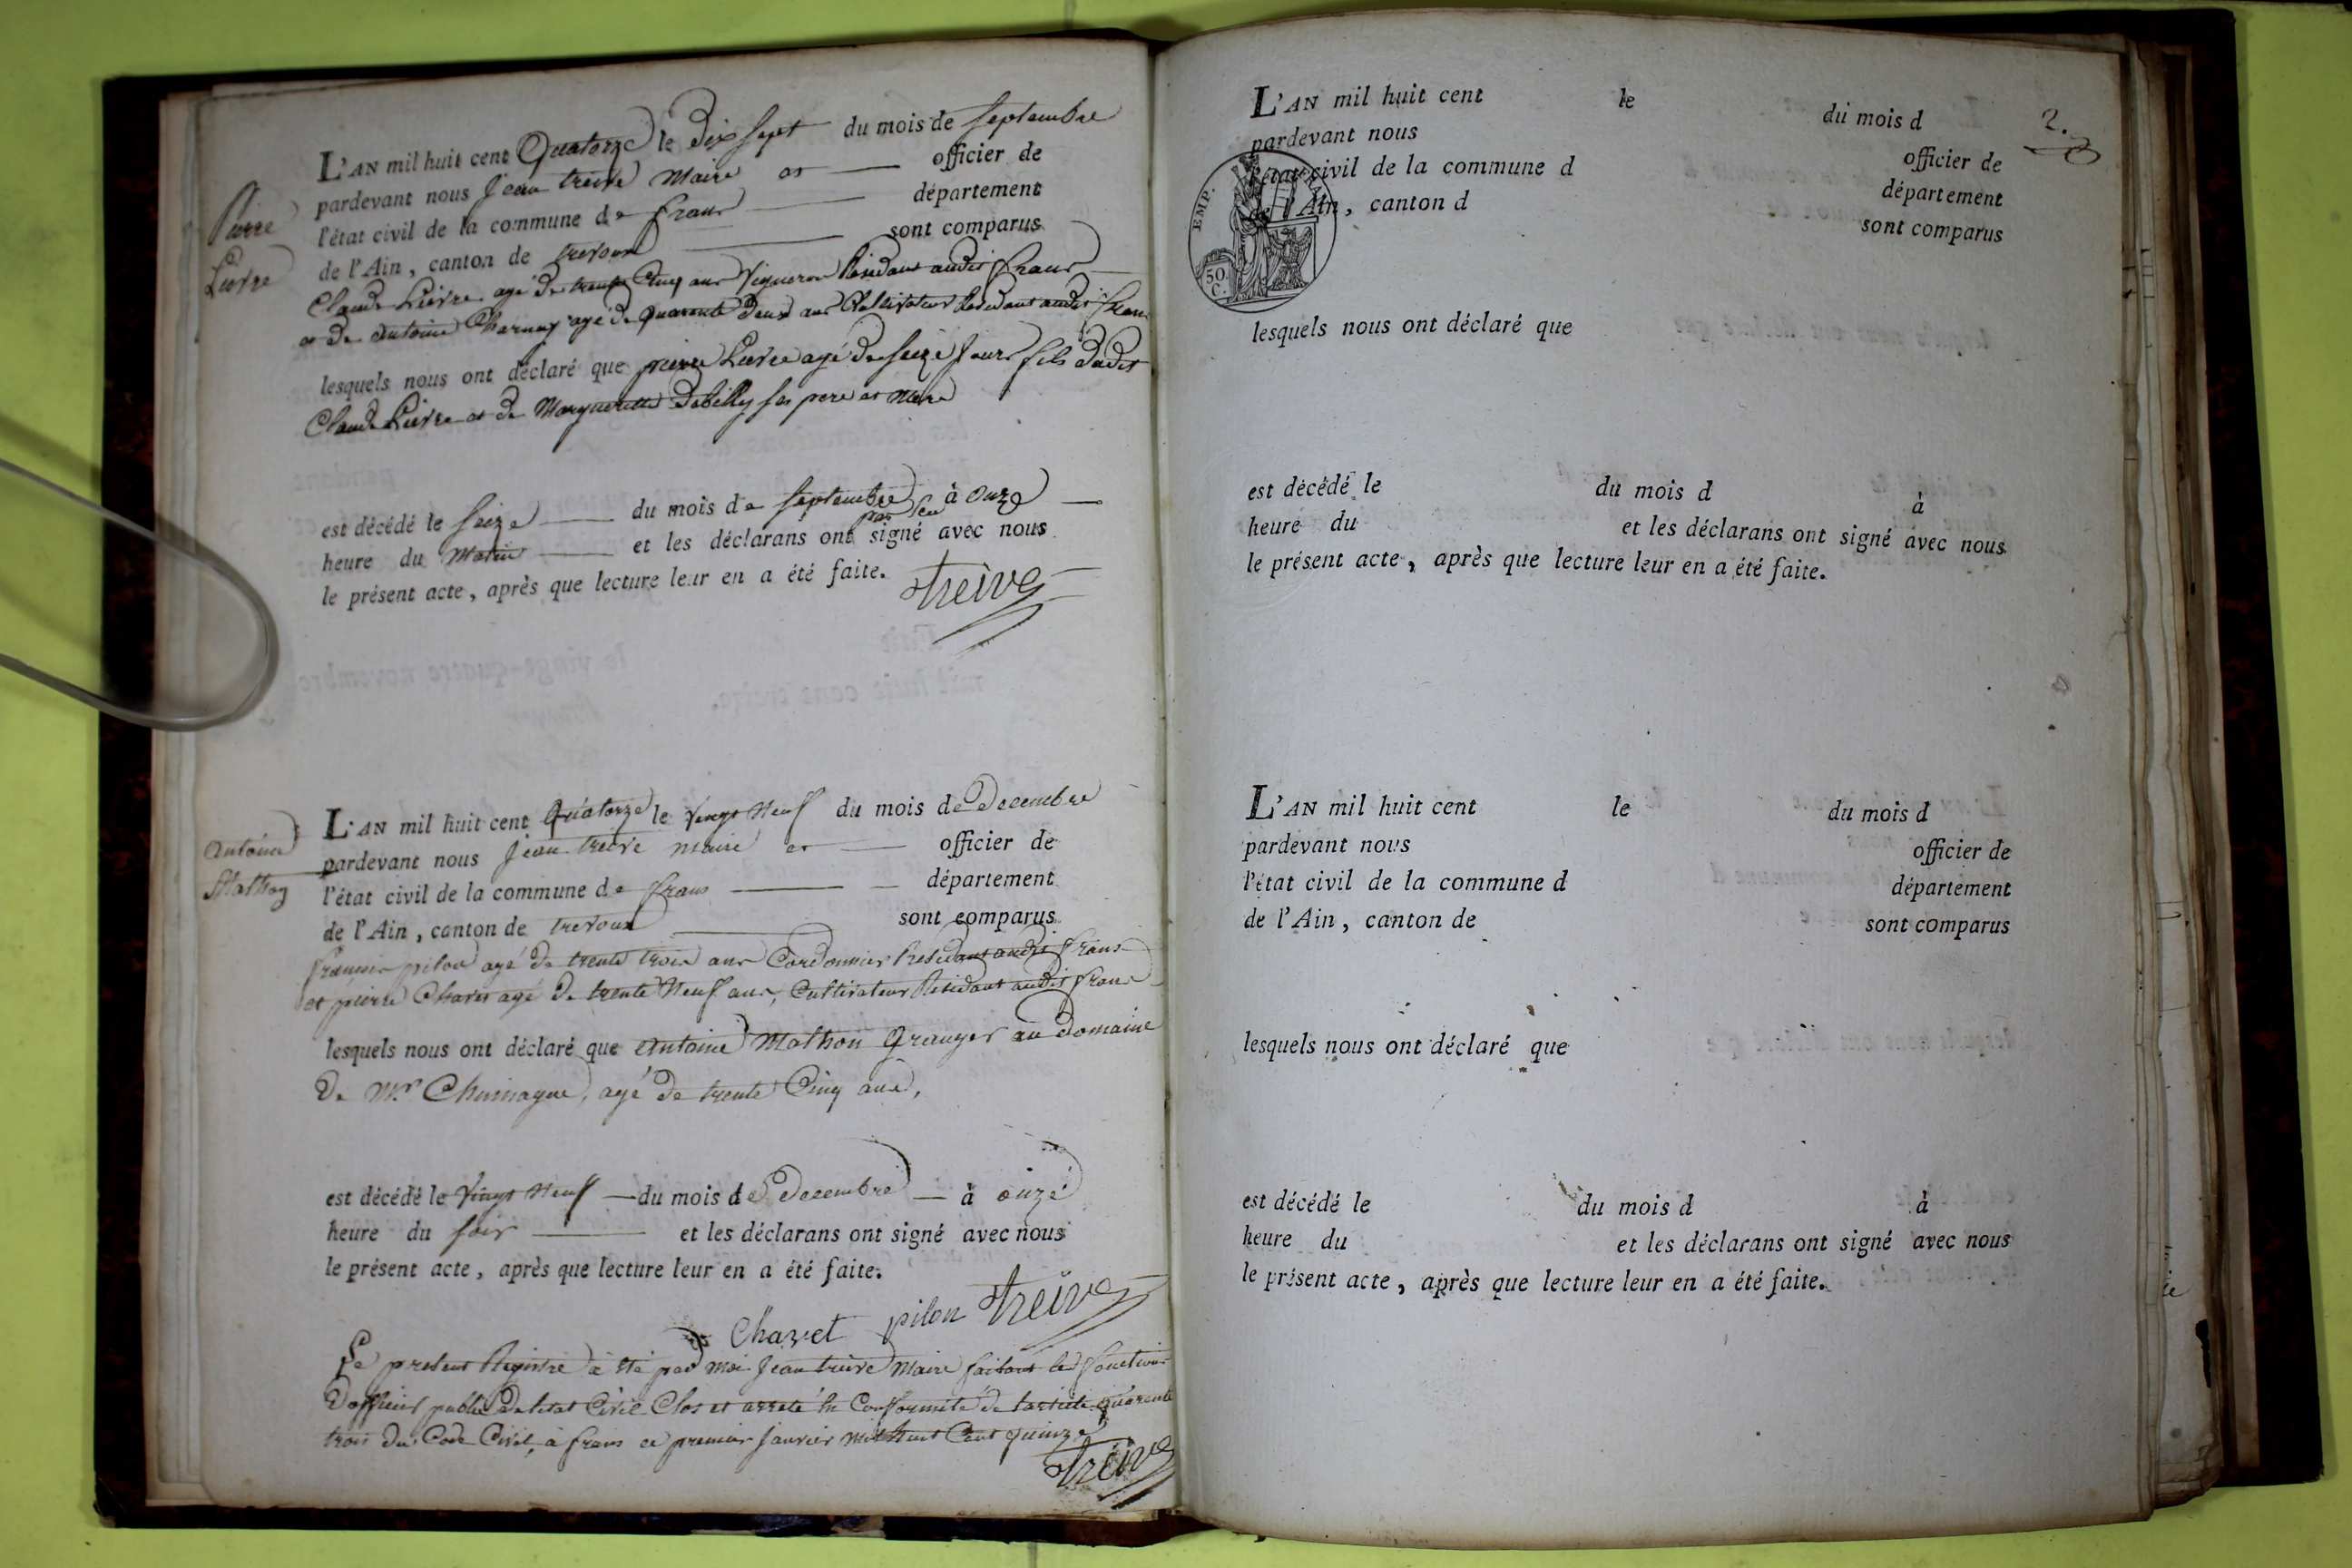 L'AN mil huit cent Quatorze le Dix sept du mois de septembre
pardevant nous Jean treive Maire et officier de
l'état civil de la commune de frans département
de l'Ain, canton de trevoux sont comparus
Pierre
Lievre
Claude Lievre agé de trente Cinq ans Vigneron Residant audit frans
et de antoine Charnay agé de quarente Deux ans Cultivateur Residant audit frans
lesquels nous ont déclaré que pierre Lievre agé de seize Jours fils dudit
Claude Lievre et de Marguerite Debilly ses pere et Mere
est décédé le seize du mois de septembre à onze
heure du Matin et les déclarans ont pas seu signé avec nous
le présent acte, après que lecture leur en a été faite.
treive
Antoine
Mathon
L'AN mil huit cent Quatorze le vingt Neuf du mois de Decembre
pardevant nous Jean treive maire et officier de
l'état civil de la commune de frans département
de l'Ain, canton de trevoux sont comparus
françois pilon agé de trente trois ans Cordonnier Residant audit frans
et pierre Chavet agé de trente Neuf ans, Cultivateur Residant audit frans
lesquels nous ont déclaré que Antoine Mathon Granger au Domaine
de Mr agé de trente Cinq ans,
est décédé le Vingt Neuf du mois de Decembre à onze
heure du soir et les déclarans ont signé avec nous
le présent acte, après que lecture leur en a été faite.
Chavet pilon treive
Le present Registre à été par moi Jean treive Maire faisant les fonctions
Dofficier public De letat Civil Clos et arreté En Conformité de larticle quarente
trois du Code Civil, à frans ce premier Janvier Mil huit Cent quinze
treive
2.
L'AN mil huit cent le du mois d
pardevant nous officier de
l'état civil de la commune d département
de l'Ain, canton d sont comparus
EMP.
50
C.
lesquels nous ont déclaré que
est décédé le du mois d à
heure du et les déclarans ont signé avec nous
le présent acte, après que lecture leur en a été faite.
L'AN mil huit cent le du mois d
pardevant nous officier de
l'état civil de la commune d département
de l'Ain, canton de sont comparus
lesquels nous ont déclaré que
est décédé le du mois d à
heure du et les déclarans ont signé avec nous
le présent acte, après que lecture leur en a été faite.